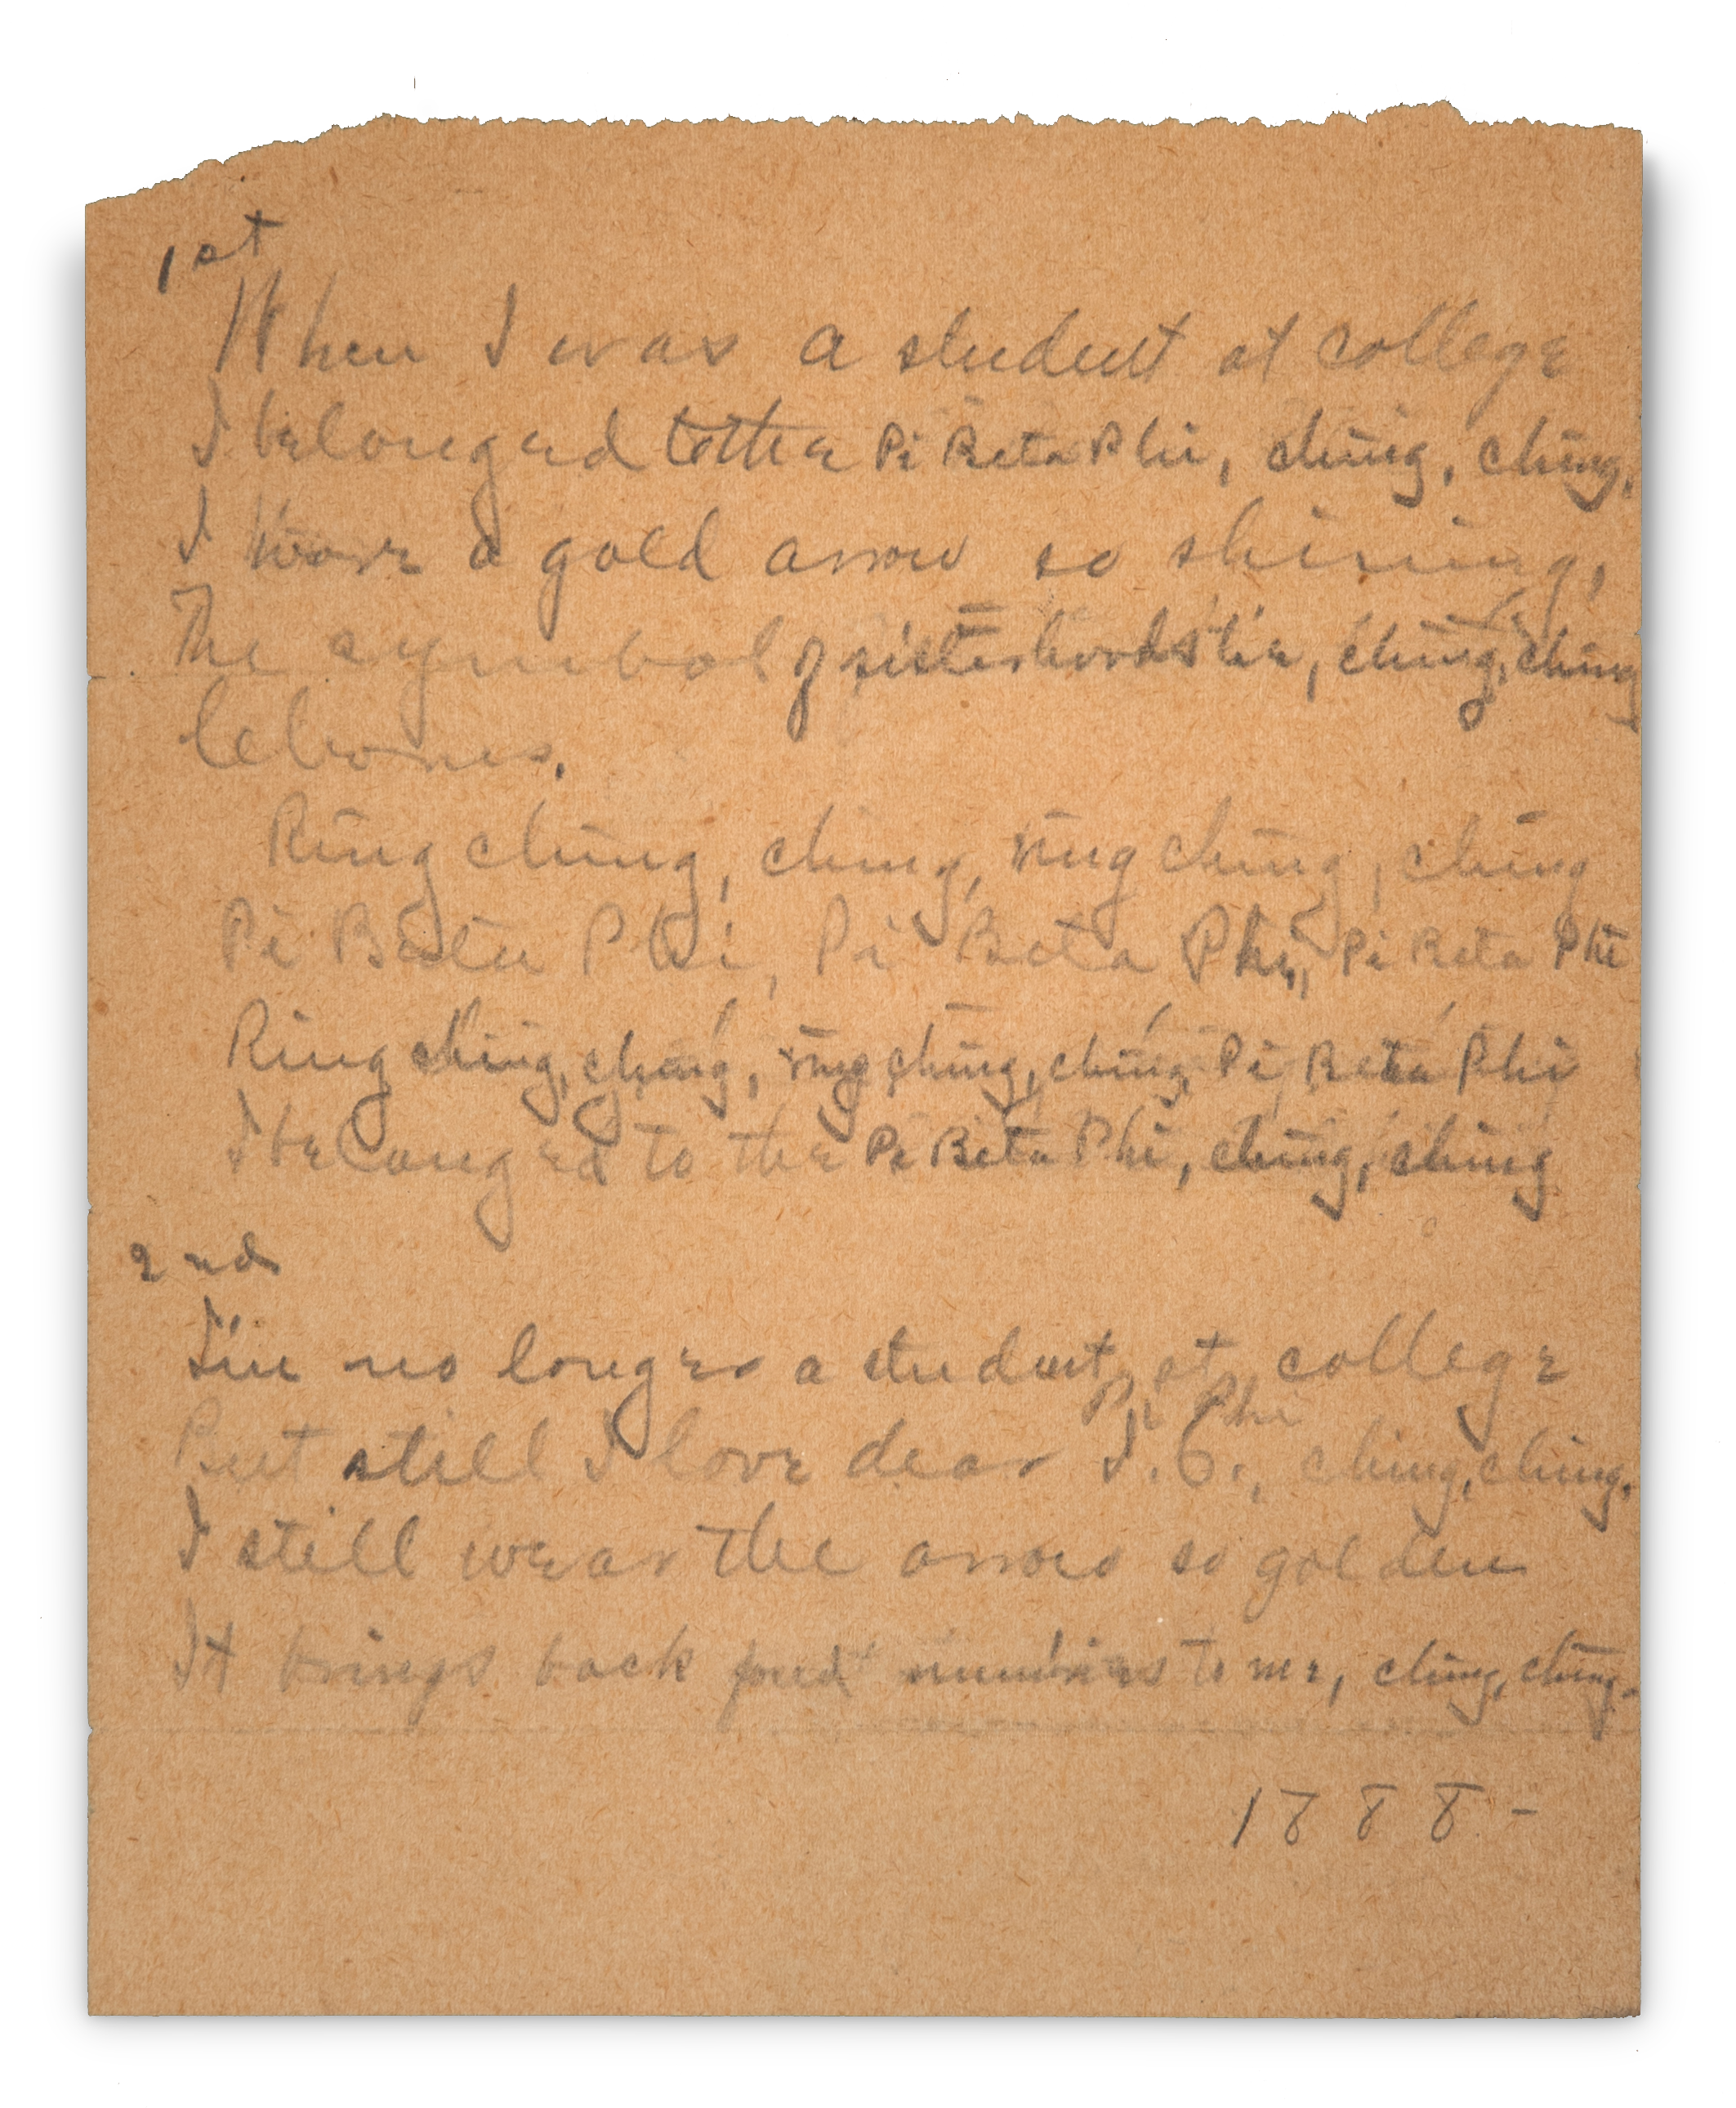 1st
When I was a student at college
I belonged to the Pi Beta Phi, ching, ching,
I wore a gold arrow so shining,
The symbol of sisterhood's tie, ching, ching
Chorus.
Ring ching, ching, ring ching, ching
Pi Beta Phi, Pi Beta Phi, Pi Beta Phi
Ring ching, ching, ring ching, ching Pi Beta Phi
I belonged to the Pi Beta Phi, ching, ching
2nd
I'm no longer a student at college
Pi Phi
But still I love dear I.C., ching, ching,
I still wear the arrow so golden
It brings back fond memories to me, ching, ching.
1888-